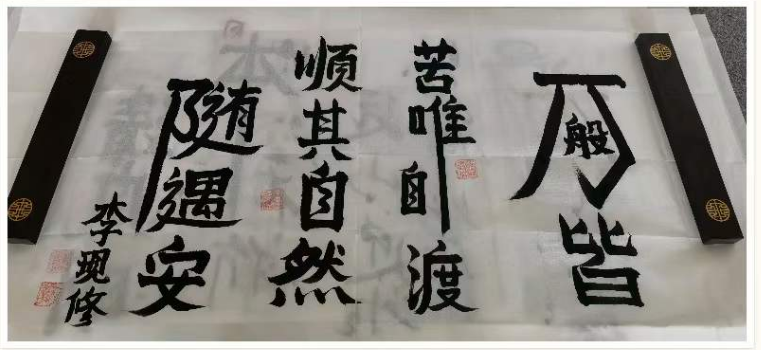 万般皆
苦唯自渡
顺其自然
随遇安
李现修